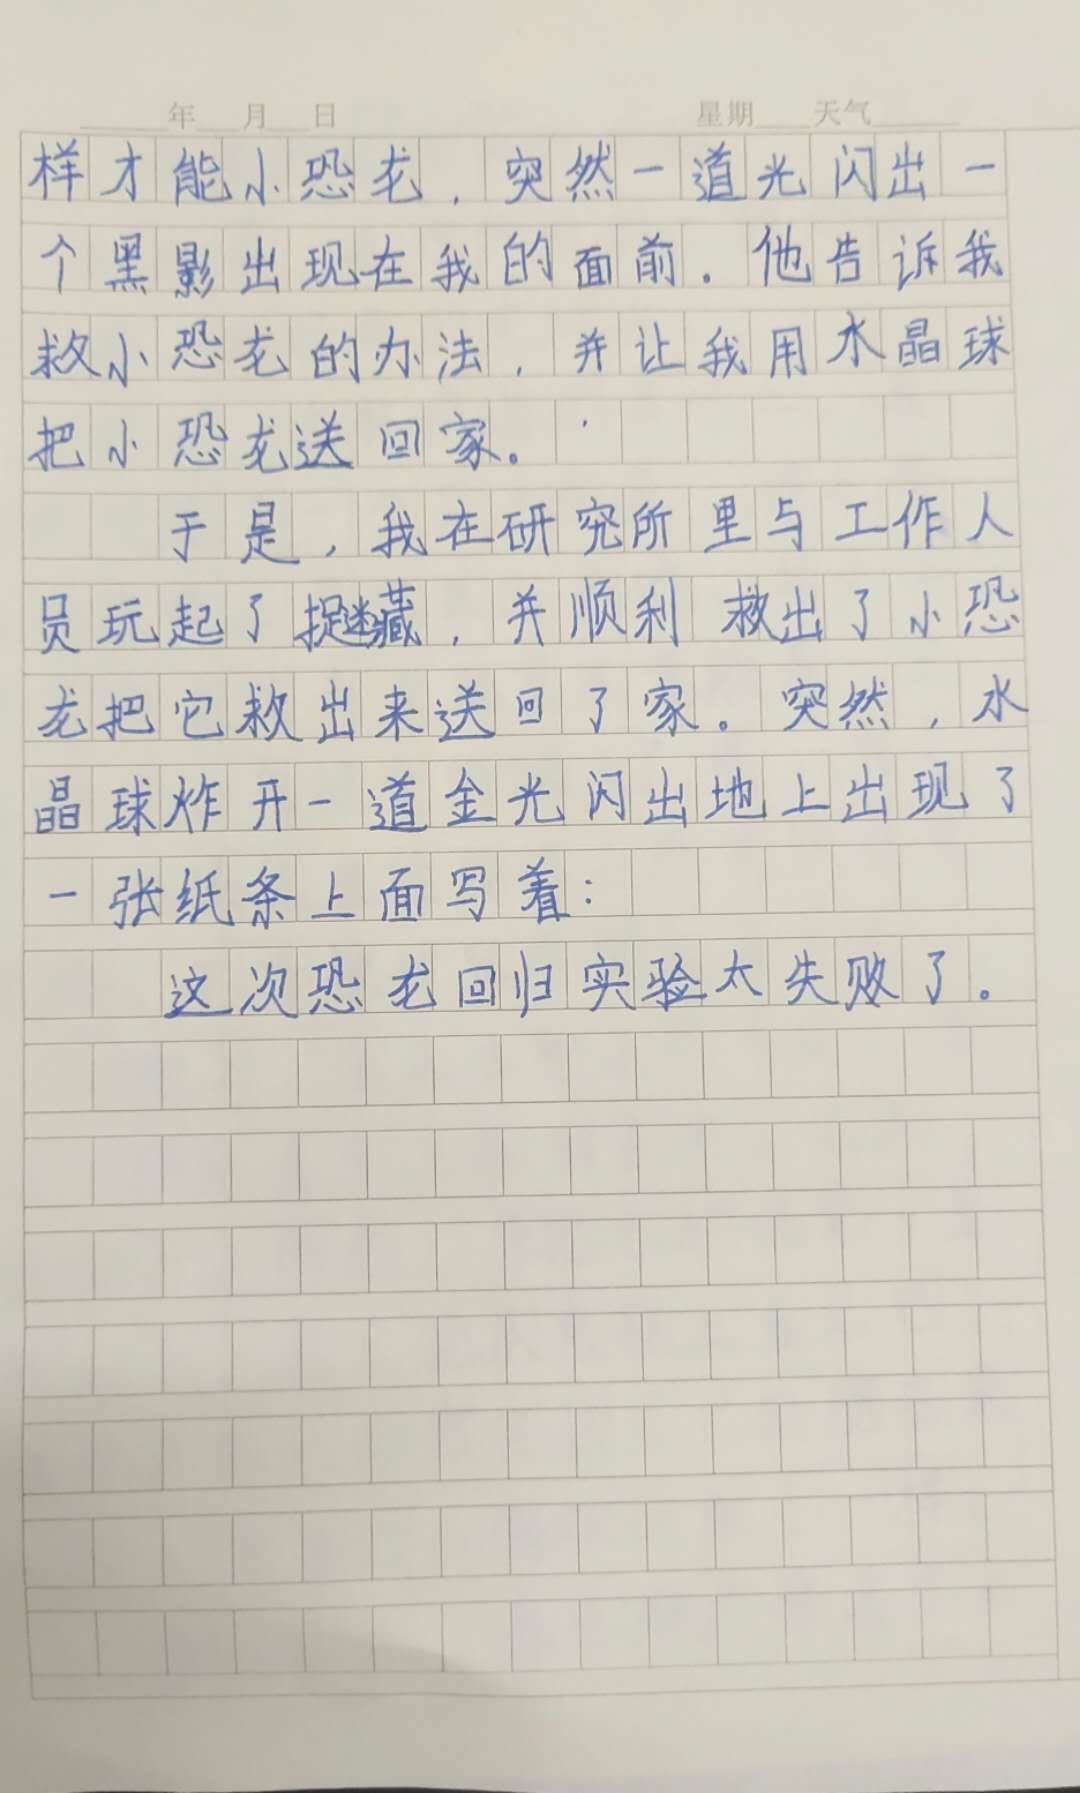 年 月 日 星期 天气
样才能小恐龙，突然一道光闪出一
个黑影出现在我的面前。他告诉我
救小恐龙的办法，并让我用水晶球
把小恐龙送回家。
于是，我在研究所里与工作人
员玩起了捉迷藏，并顺利救出了小恐
龙把它救出来送回了家。突然，水
晶球炸开一道金光闪出地上出现了
一张纸条上面写着：
这次恐龙回归实验太失败了。